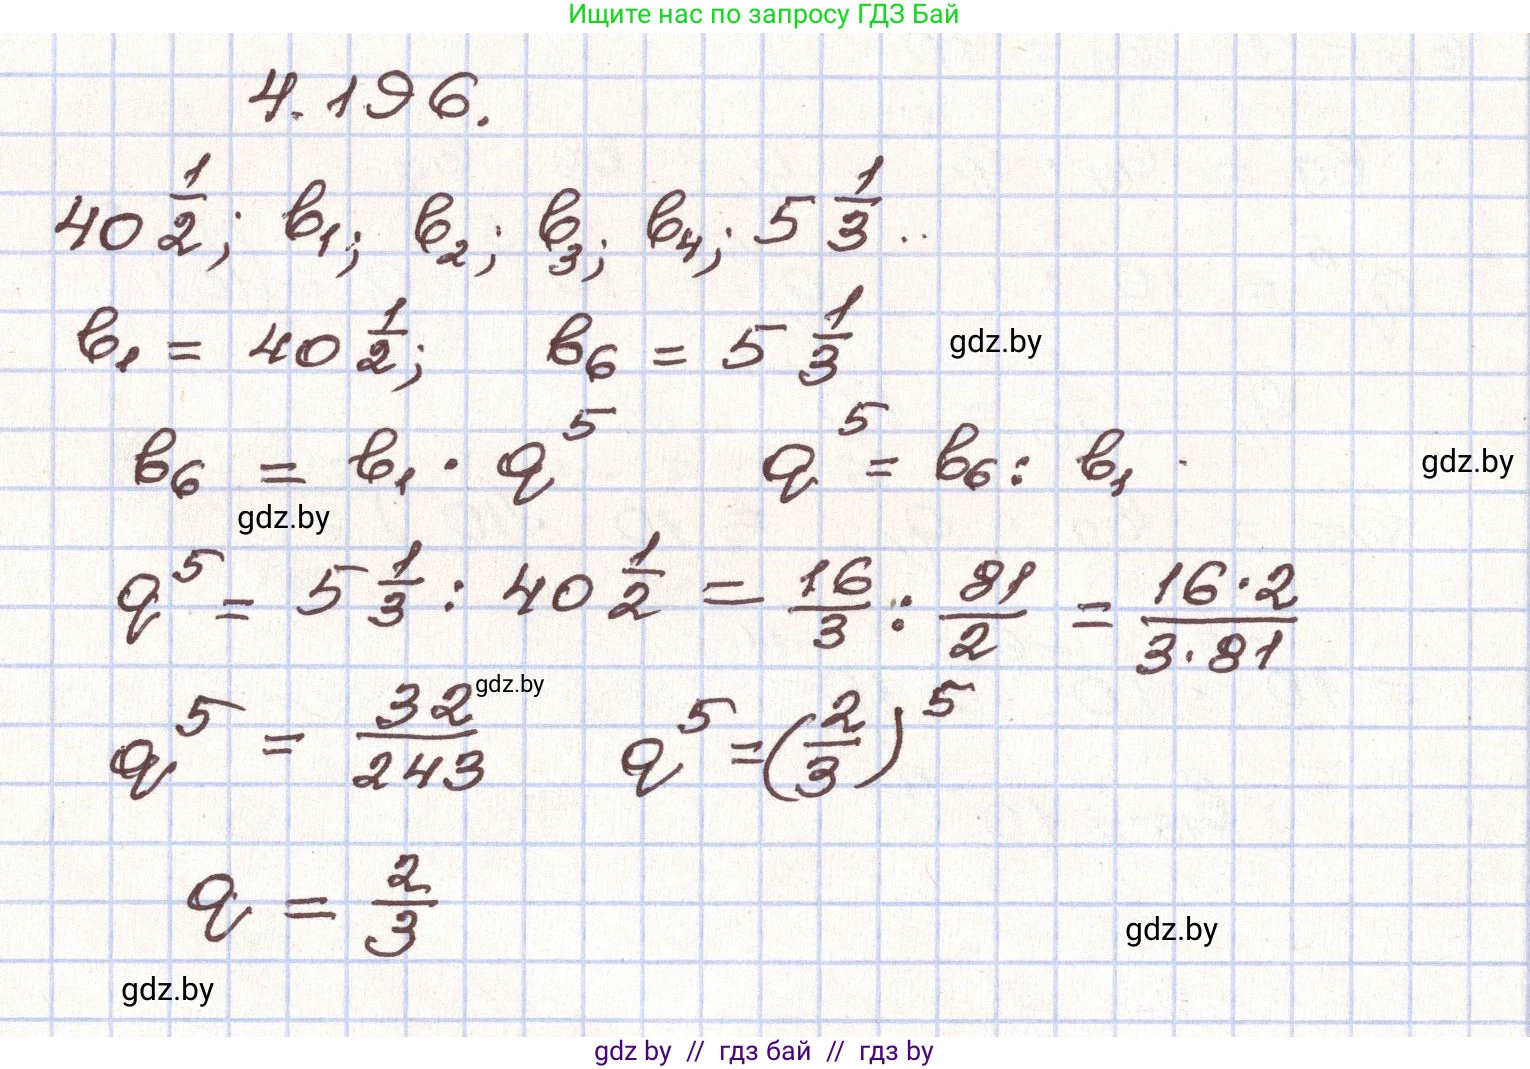 Ищите нас по запросу ГДЗ Бай
4.196.
40 1/2; в₁; в₂; в₃; в₄; 5 1/3 ..
в₁ = 40 1/2; в₆ = 5 1/3
gdz.by
в₆ = в₁ · q⁵ q⁵ = в₆ : в₁
gdz.by
gdz.by
q⁵ = 5 1/3 : 40 1/2 = 16/3 : 81/2 = 16·2/3·81
gdz.by
q⁵ = 32/243 q⁵ = (2/3)⁵
q = 2/3
gdz.by
gdz.by
gdz by // гдз бай // гдз by